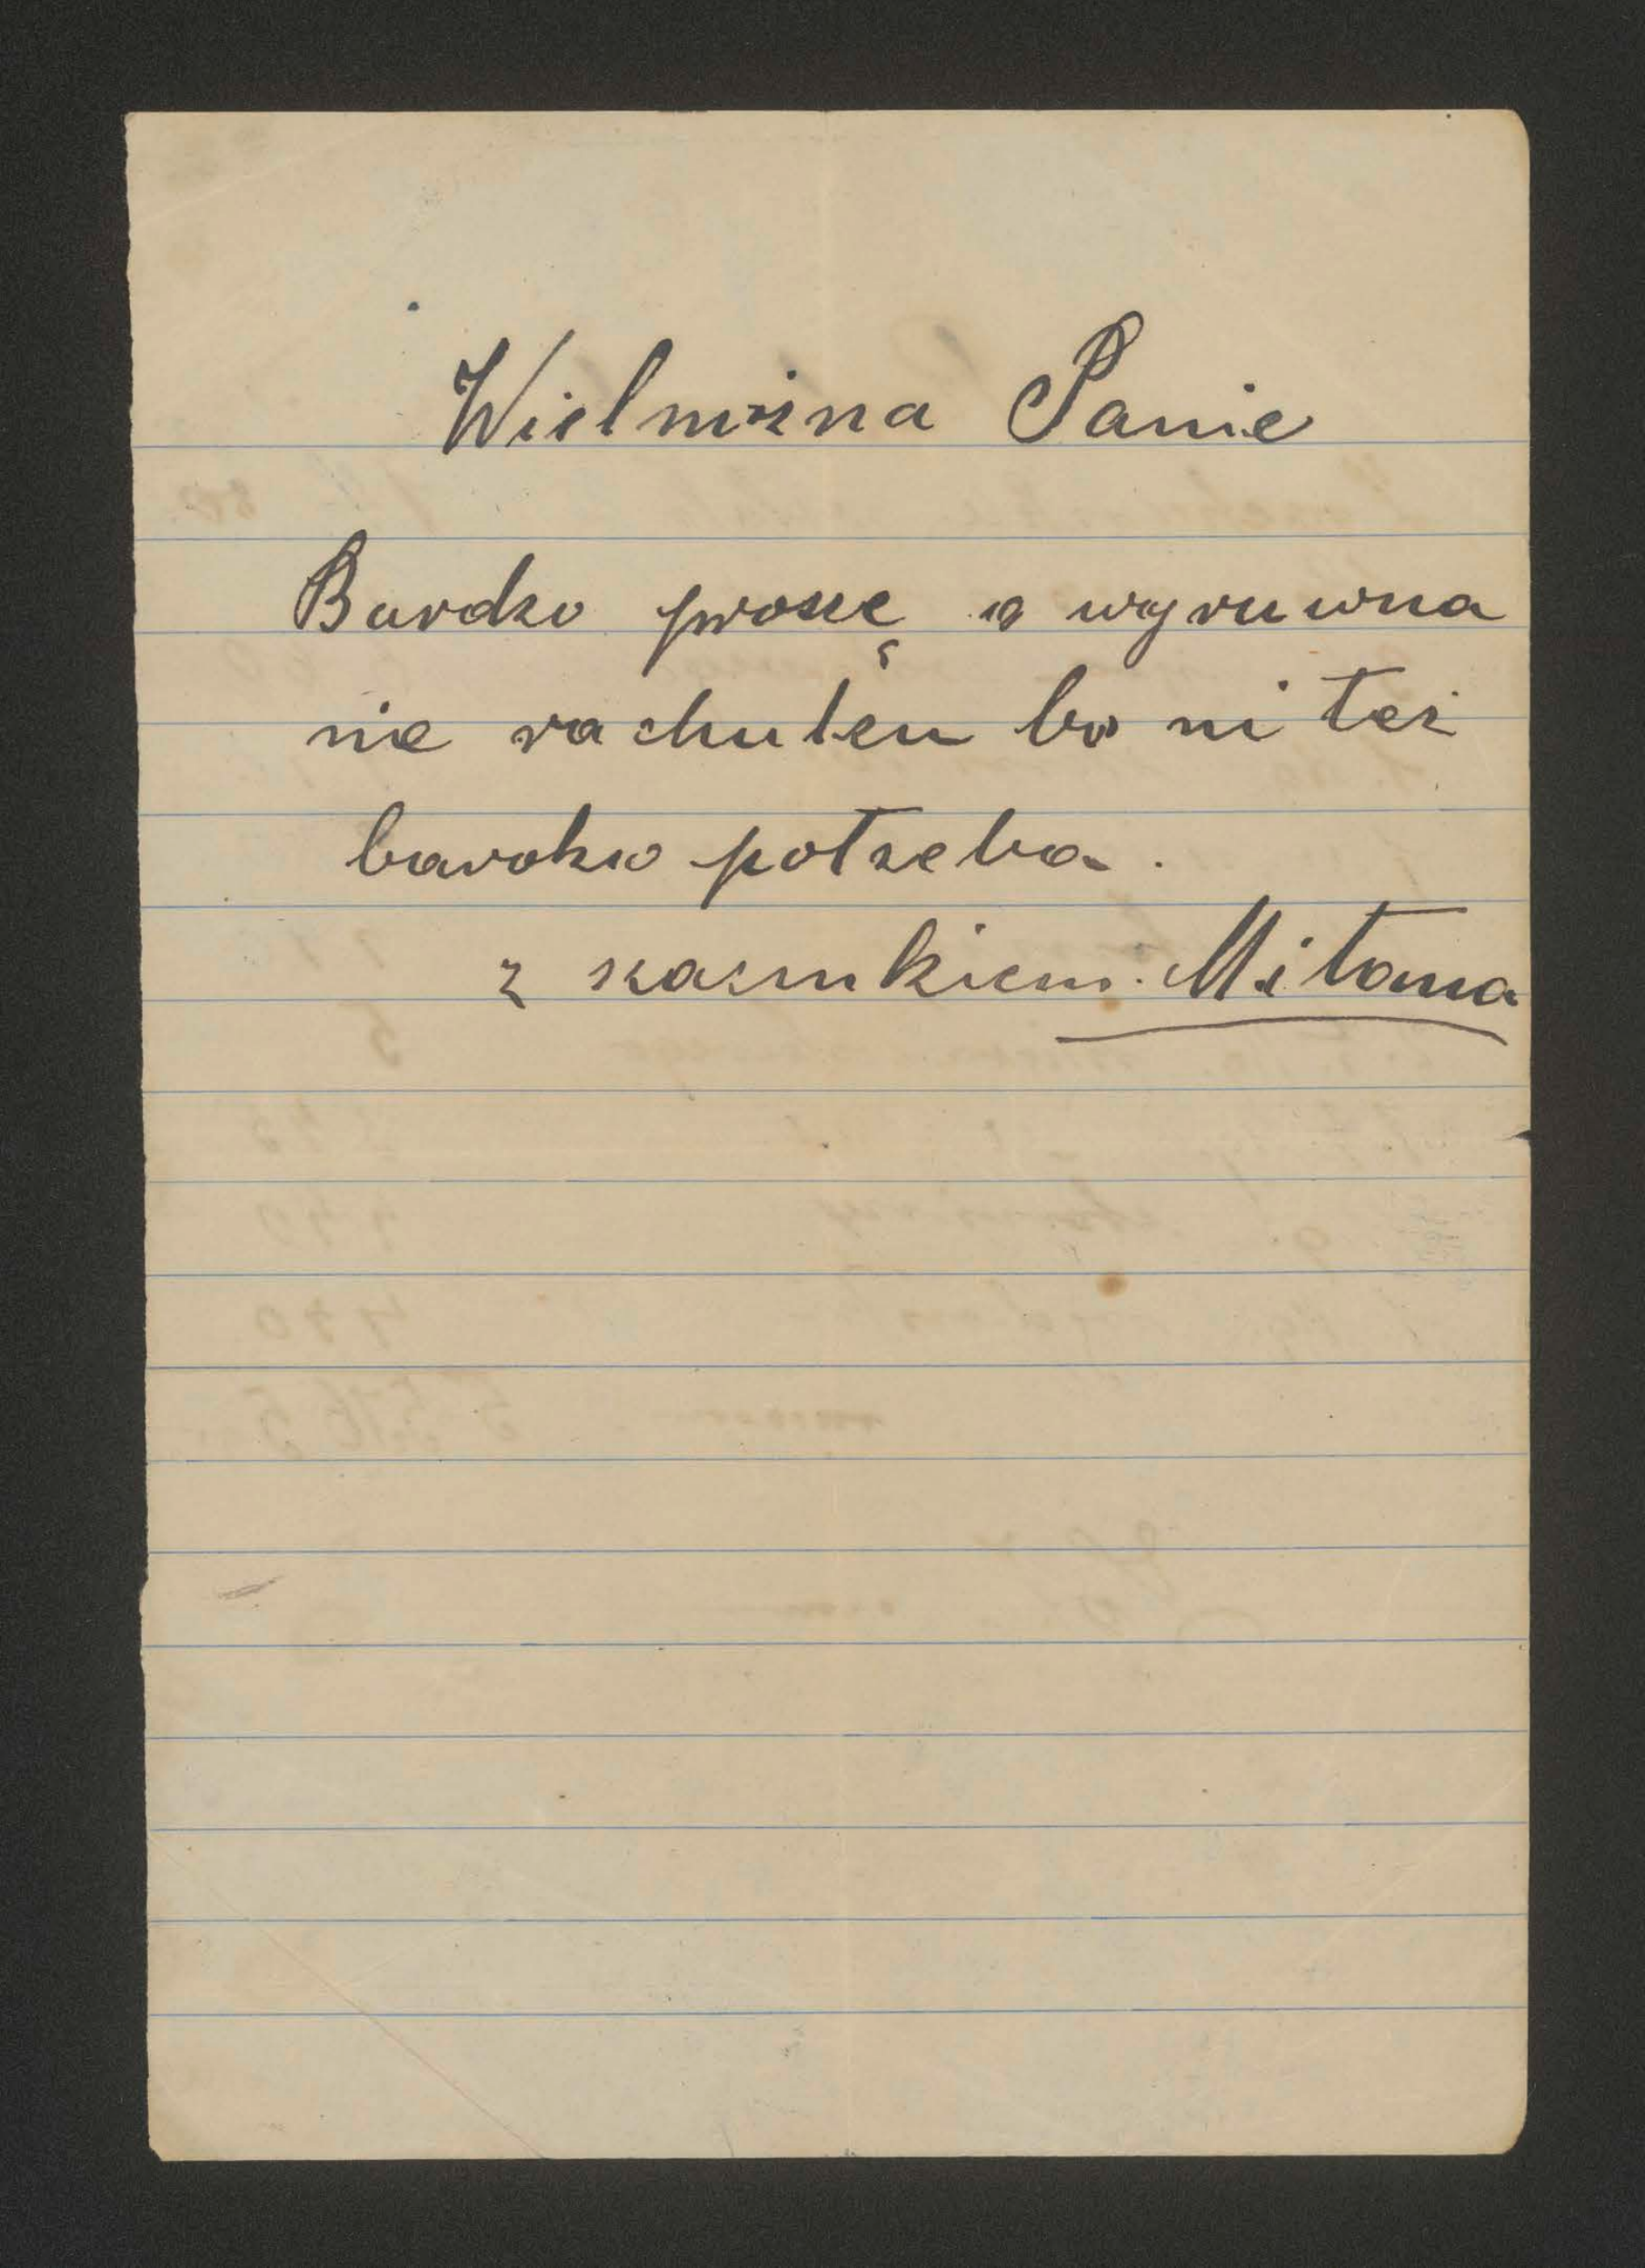 Wielmożna Panie
Bardzo proszę o wyruwna
nie rachuken bo mi też
bardzo potseba.
z szasunkiem. Mitoma